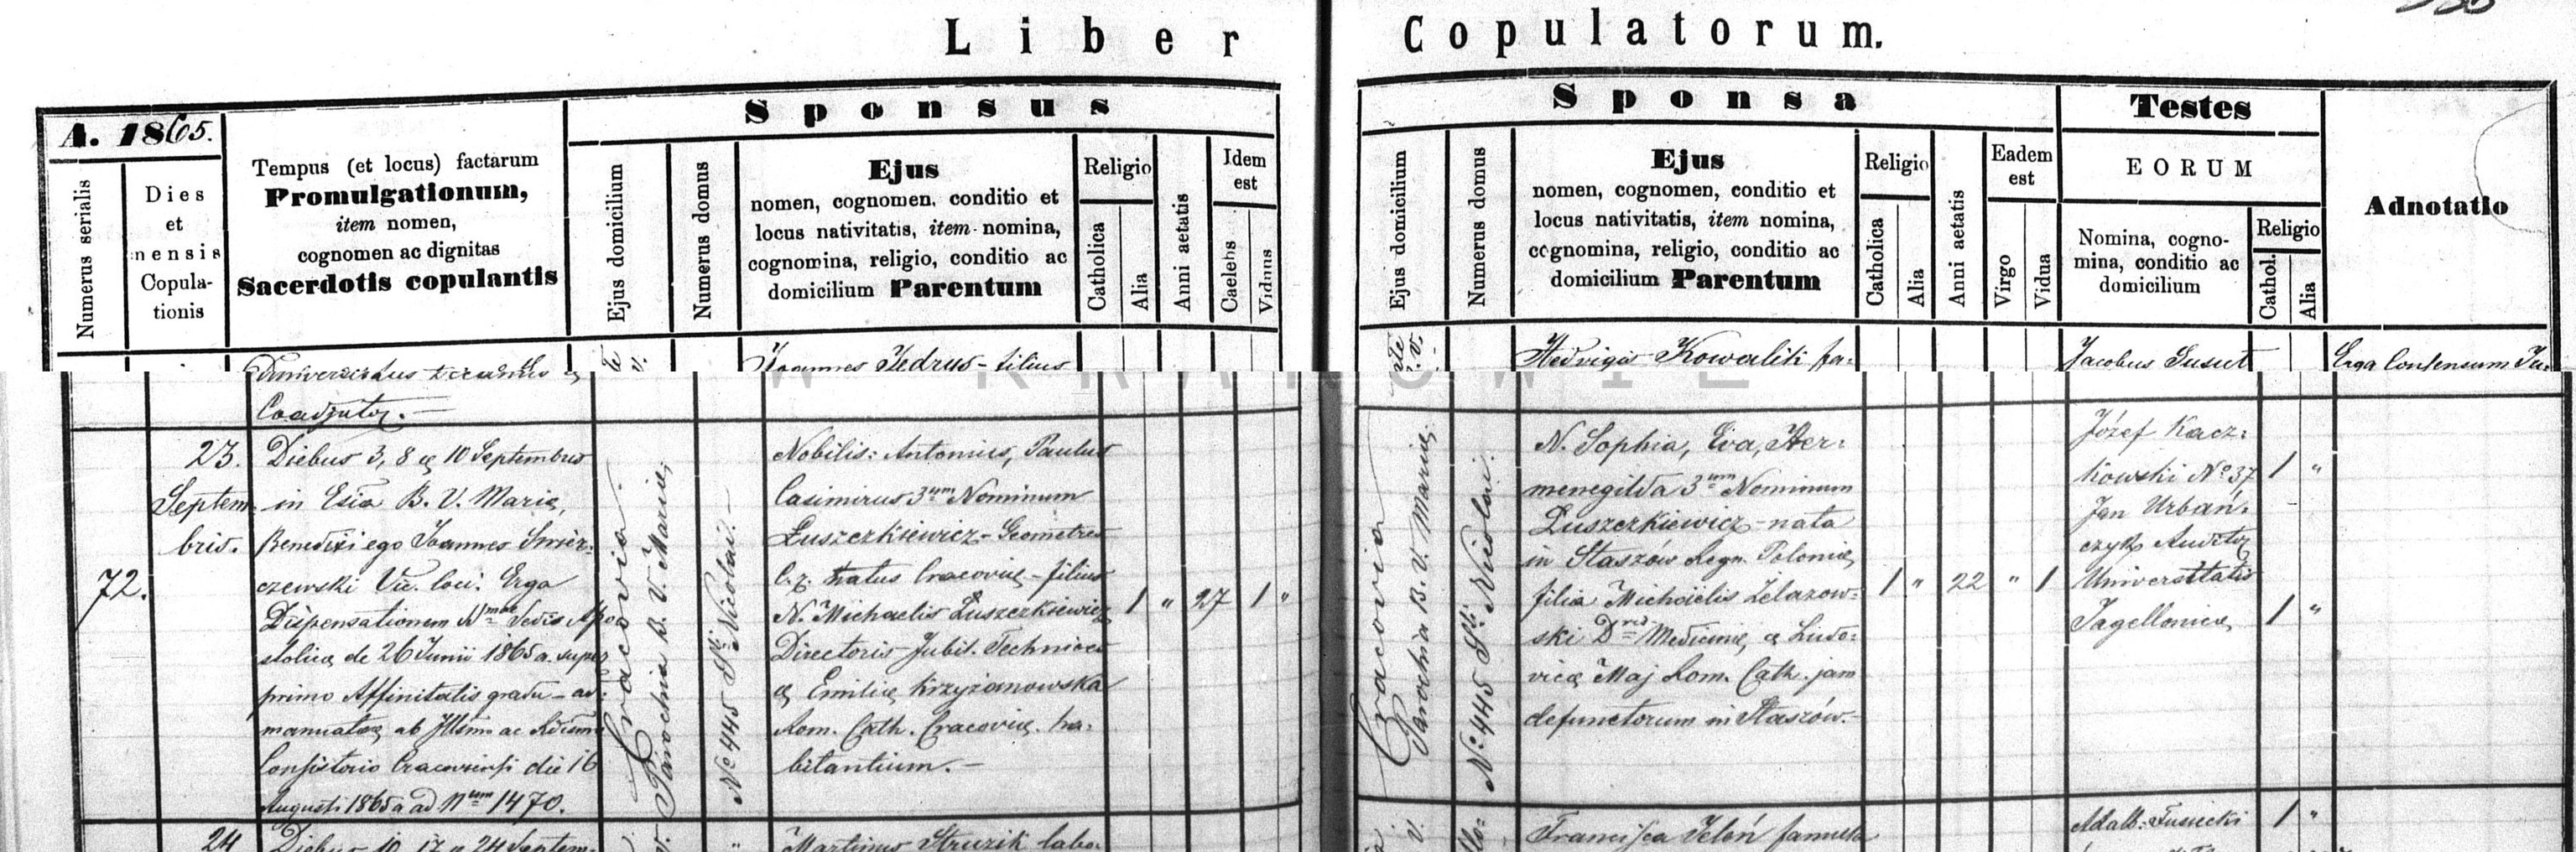 Liber Copulatorum.
A. 1865.
Numerus serialis
Dies
et
mensis
Copula-
tionis
Tempus (et locus) factarum
Promulgationum,
item nomen,
cognomen ac dignitas
Sacerdotis copulantis
Sponsus
Ejus domicilium
Numerus domus
Ejus
nomen, cognomen, conditio et
locus nativitatis, item nomina,
cognomina, religio, conditio ac
domicilium Parentum
Religio
Catholica
Alia
Anni aetatis
Idem
est
Caelebs
Viduus
Sponsa
Ejus domicilium
Numerus domus
Ejus
nomen, cognomen, conditio et
locus nativitatis, item nomina,
cognomina, religio, conditio ac
domicilium Parentum
Religio
Catholica
Alia
Anni aetatis
Eadem
est
Virgo
Vidua
Testes
EORUM
Nomina, cogno-
mina, conditio ac
domicilium
Religio
Cathol.
Alia
Adnotatio
Joannes Jedrus - filius
Hedvigis Kowalik fa-
Jacobus Gusut
Erga Consensum
Coadjutor.
72.
23.
Septem
bris.
Diebus 3, 8 et 10 Septembris
in Esia B. V. Mariæ,
Benedixi ego Joannes Smier:
czewski Vic. loci. Erga
Dispensationem Smae Sedis Apo
stolicæ de 26 Junii 1865 a. super
primo Affinitatis gradu - ad:
manuatæ ab Illsmo ac Rdism
Consistorio Cracoviensi die 16
Augusti 1865 a ad Num 1470.
Cracovia.
Parochia B. V. Mariæ,
No 445 Sti Nicolai. -
Nobilis: Antonius, Paulus
Casimirus 3um Nominum
Łuszczkiewicz - Geometres
c. r. natus Cracoviæ - filius
N. Michaelis Łuszczkiewicz
Directoris Jubil. Technices
et Emiliæ Krzyżanowska
Rom. Cath. Cracoviæ. ha:
bitantium. -
1 " 27 1 "
Cracovia
Parochia B. V. Mariæ,
No 445 Sti Nicolai.
N. Sophia, Eva, Her:
menegilda 3um Nominum
Łuszczkiewicz - nata
in Staszów Regn. Poloniæ,
filia Michaëlis Zelazow:
ski Dris Medicinæ, et Ludo:
vicæ Maj Rom. Cath. jam
defunctorum in Staszów. -
1 " 22 " 1
Józef Kacz:
kowski No 37 1 "
Jan Urbań:
czyk Auditor
Universitatis
Jagellonicæ 1 "
24
Diebus 10, 17 et 24 Septem-
Martinus Struzik labo-
Francisca Jeleń famula
Adalb: Fusiecki 1 "